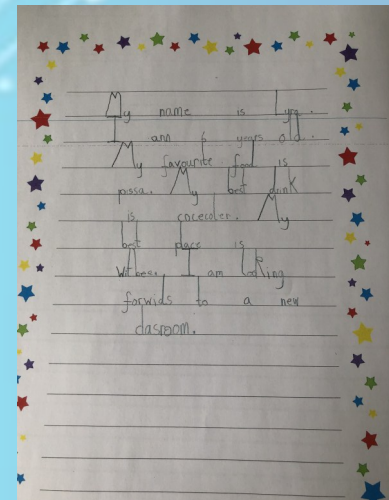 My name is Lyra.
I ann 6 years old.
My favourite food is
pissa. My best drink
is cocecoler. My
best place is
Witbee. I am looking
forwids to a new
clasroom.